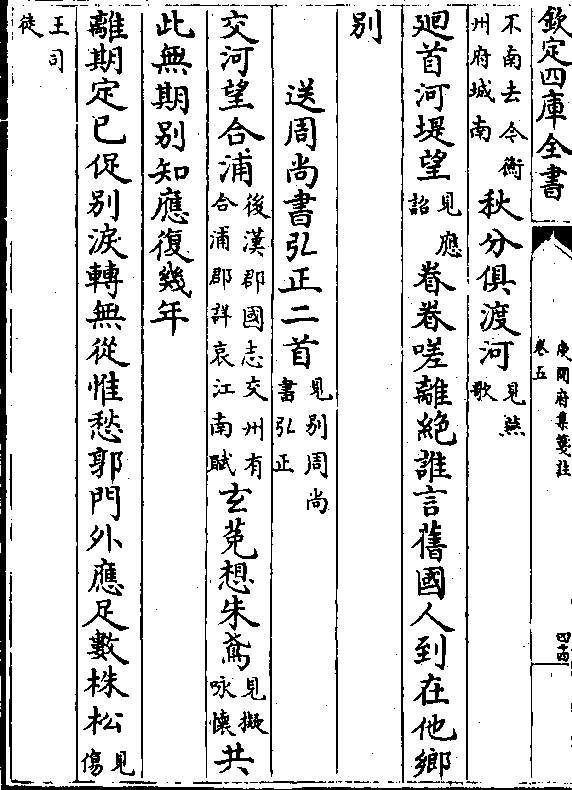 欽定四庫全書
庾開府集箋註
卷五
四十四
不南去今衛州府城南秋分俱渡河見燕歌
廻首河堤望見應詔眷眷嗟離絶誰言舊國人到在他鄉
别
送周尚書弘正二首見别周尚書弘正
交河望合浦後漢郡國志交州有合浦郡詳哀江南賦玄菟想朱鳶見擬咏懷共
此無期别知應復幾年
離期定已促别淚轉無從惟愁郭門外應足數株松見傷
王司徒